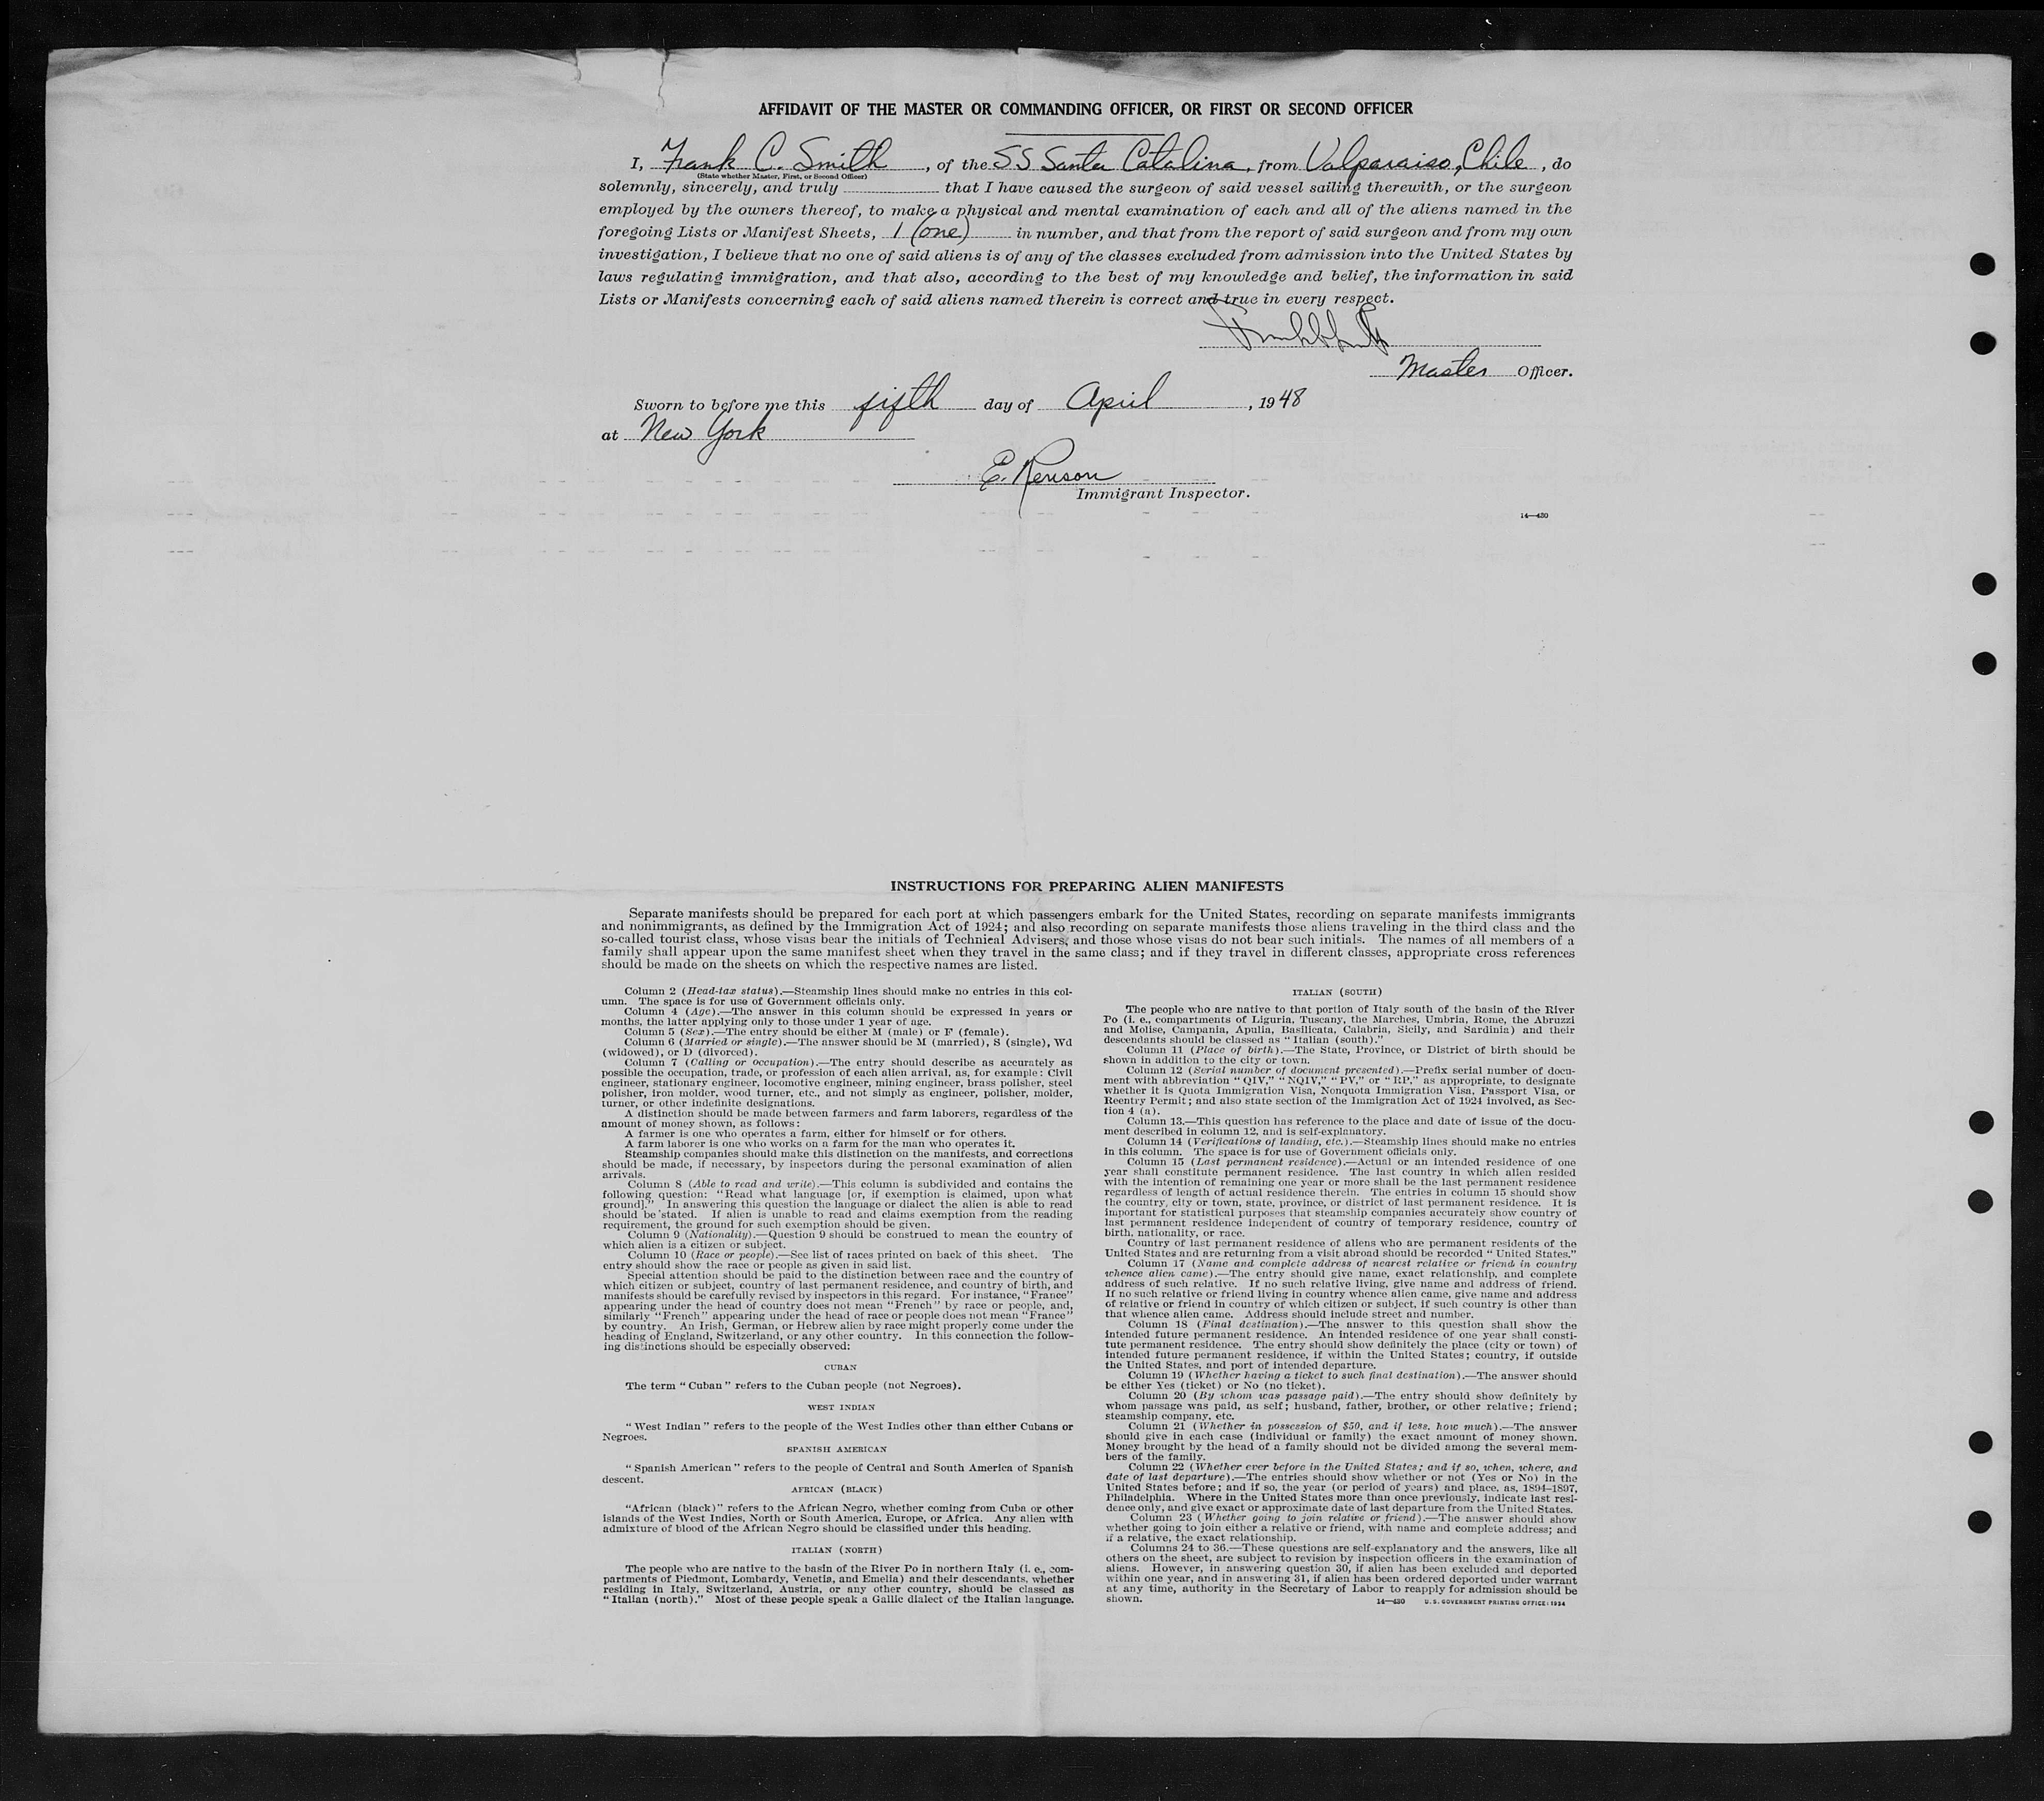 AFFIDAVIT OF THE MASTER OR COMMANDING OFFICER, OR FIRST OR SECOND OFFICER
I, Frank C. Smith, of the SS Santa Catalina, from Valparaiso, Chile, do
(State whether Master, First, or Second Officer)
solemnly, sincerely, and truly that I have caused the surgeon of said vessel sailing therewith, or the surgeon
employed by the owners thereof, to make a physical and mental examination of each and all of the aliens named in the
foregoing Lists or Manifest Sheets, 1 (one) in number, and that from the report of said surgeon and from my own
investigation, I believe that no one of said aliens is of any of the classes excluded from admission into the United States by
laws regulating immigration, and that also, according to the best of my knowledge and belief, the information in said
Lists or Manifests concerning each of said aliens named therein is correct and true in every respect.
Master Officer.
Sworn to before me this fifth day of April, 1948
at New York
E. Renson
Immigrant Inspector.
14—430
INSTRUCTIONS FOR PREPARING ALIEN MANIFESTS
Separate manifests should be prepared for each port at which passengers embark for the United States, recording on separate manifests immigrants
and nonimmigrants, as defined by the Immigration Act of 1924; and also recording on separate manifests those aliens traveling in the third class and the
so-called tourist class, whose visas bear the initials of Technical Advisers, and those whose visas do not bear such initials. The names of all members of a
family shall appear upon the same manifest sheet when they travel in the same class; and if they travel in different classes, appropriate cross references
should be made on the sheets on which the respective names are listed.
Column 2 (Head-tax status).—Steamship lines should make no entries in this col-
umn. The space is for use of Government officials only.
Column 4 (Age).—The answer in this column should be expressed in years or
months, the latter applying only to those under 1 year of age.
Column 5 (Sex).—The entry should be either M (male) or F (female).
Column 6 (Married or single).—The answer should be M (married), S (single), Wd
(widowed), or D (divorced).
Column 7 (Calling or occupation).—The entry should describe as accurately as
possible the occupation, trade, or profession of each alien arrival, as, for example: Civil
engineer, stationary engineer, locomotive engineer, mining engineer, brass polisher, steel
polisher, iron molder, wood turner, etc., and not simply as engineer, polisher, molder,
turner, or other indefinite designations.
A distinction should be made between farmers and farm laborers, regardless of the
amount of money shown, as follows:
A farmer is one who operates a farm, either for himself or for others.
A farm laborer is one who works on a farm for the man who operates it.
Steamship companies should make this distinction on the manifests, and corrections
should be made, if necessary, by inspectors during the personal examination of alien
arrivals.
Column 8 (Able to read and write).—This column is subdivided and contains the
following question: "Read what language [or, if exemption is claimed, upon what
ground]." In answering this question the language or dialect the alien is able to read
should be stated. If alien is unable to read and claims exemption from the reading
requirement, the ground for such exemption should be given.
Column 9 (Nationality).—Question 9 should be construed to mean the country of
which alien is a citizen or subject.
Column 10 (Race or people).—See list of races printed on back of this sheet. The
entry should show the race or people as given in said list.
Special attention should be paid to the distinction between race and the country of
which citizen or subject, country of last permanent residence, and country of birth, and
manifests should be carefully revised by inspectors in this regard. For instance, "France"
appearing under the head of country does not mean "French" by race or people, and,
similarly "French" appearing under the head of race or people does not mean "France"
by country. An Irish, German, or Hebrew alien by race might properly come under the
heading of England, Switzerland, or any other country. In this connection the follow-
ing distinctions should be especially observed:
CUBAN
The term "Cuban" refers to the Cuban people (not Negroes).
WEST INDIAN
"West Indian" refers to the people of the West Indies other than either Cubans or
Negroes.
SPANISH AMERICAN
"Spanish American" refers to the people of Central and South America of Spanish
descent.
AFRICAN (BLACK)
"African (black)" refers to the African Negro, whether coming from Cuba or other
islands of the West Indies, North or South America, Europe, or Africa. Any alien with
admixture of blood of the African Negro should be classified under this heading.
ITALIAN (NORTH)
The people who are native to the basin of the River Po in northern Italy (i. e., com-
partments of Piedmont, Lombardy, Venetia, and Emelia) and their descendants, whether
residing in Italy, Switzerland, Austria, or any other country, should be classed as
"Italian (north)." Most of these people speak a Gallic dialect of the Italian language.
ITALIAN (SOUTH)
The people who are native to that portion of Italy south of the basin of the River
Po (i. e., compartments of Liguria, Tuscany, the Marches, Umbria, Rome, the Abruzzi
and Molise, Campania, Apulia, Basilicata, Calabria, Sicily, and Sardinia) and their
descendants should be classed as "Italian (south)."
Column 11 (Place of birth).—The State, Province, or District of birth should be
shown in addition to the city or town.
Column 12 (Serial number of document presented).—Prefix serial number of docu-
ment with abbreviation "QIV," "NQIV," "PV," or "RP," as appropriate, to designate
whether it is Quota Immigration Visa, Nonquota Immigration Visa, Passport Visa, or
Reentry Permit; and also state section of the Immigration Act of 1924 involved, as Sec-
tion 4 (a).
Column 13.—This question has reference to the place and date of issue of the docu-
ment described in column 12, and is self-explanatory.
Column 14 (Verifications of landing, etc.).—Steamship lines should make no entries
in this column. The space is for use of Government officials only.
Column 15 (Last permanent residence).—Actual or an intended residence of one
year shall constitute permanent residence. The last country in which alien resided
with the intention of remaining one year or more shall be the last permanent residence
regardless of length of actual residence therein. The entries in column 15 should show
the country, city or town, state, province, or district of last permanent residence. It is
important for statistical purposes that steamship companies accurately show country of
last permanent residence independent of country of temporary residence, country of
birth, nationality, or race.
Country of last permanent residence of aliens who are permanent residents of the
United States and are returning from a visit abroad should be recorded "United States."
Column 17 (Name and complete address of nearest relative or friend in country
whence alien came).—The entry should give name, exact relationship, and complete
address of such relative. If no such relative living, give name and address of friend.
If no such relative or friend living in country whence alien came, give name and address
of relative or friend in country of which citizen or subject, if such country is other than
that whence alien came. Address should include street and number.
Column 18 (Final destination).—The answer to this question shall show the
intended future permanent residence. An intended residence of one year shall consti-
tute permanent residence. The entry should show definitely the place (city or town) of
intended future permanent residence, if within the United States; country, if outside
the United States, and port of intended departure.
Column 19 (Whether having a ticket to such final destination).—The answer should
be either Yes (ticket) or No (no ticket).
Column 20 (By whom was passage paid).—The entry should show definitely by
whom passage was paid, as self; husband, father, brother, or other relative; friend;
steamship company, etc.
Column 21 (Whether in possession of $50, and if less, how much).—The answer
should give in each case (individual or family) the exact amount of money shown.
Money brought by the head of a family should not be divided among the several mem-
bers of the family.
Column 22 (Whether ever before in the United States; and if so, when, where, and
date of last departure).—The entries should show whether or not (Yes or No) in the
United States before; and if so, the year (or period of years) and place, as, 1894–1897,
Philadelphia. Where in the United States more than once previously, indicate last resi-
dence only, and give exact or approximate date of last departure from the United States.
Column 23 (Whether going to join relative or friend).—The answer should show
whether going to join either a relative or friend, with name and complete address; and
if a relative, the exact relationship.
Columns 24 to 36.—These questions are self-explanatory and the answers, like all
others on the sheet, are subject to revision by inspection officers in the examination of
aliens. However, in answering question 30, if alien has been excluded and deported
within one year, and in answering 31, if alien has been ordered deported under warrant
at any time, authority in the Secretary of Labor to reapply for admission should be
shown.
14—430 U. S. GOVERNMENT PRINTING OFFICE: 1934